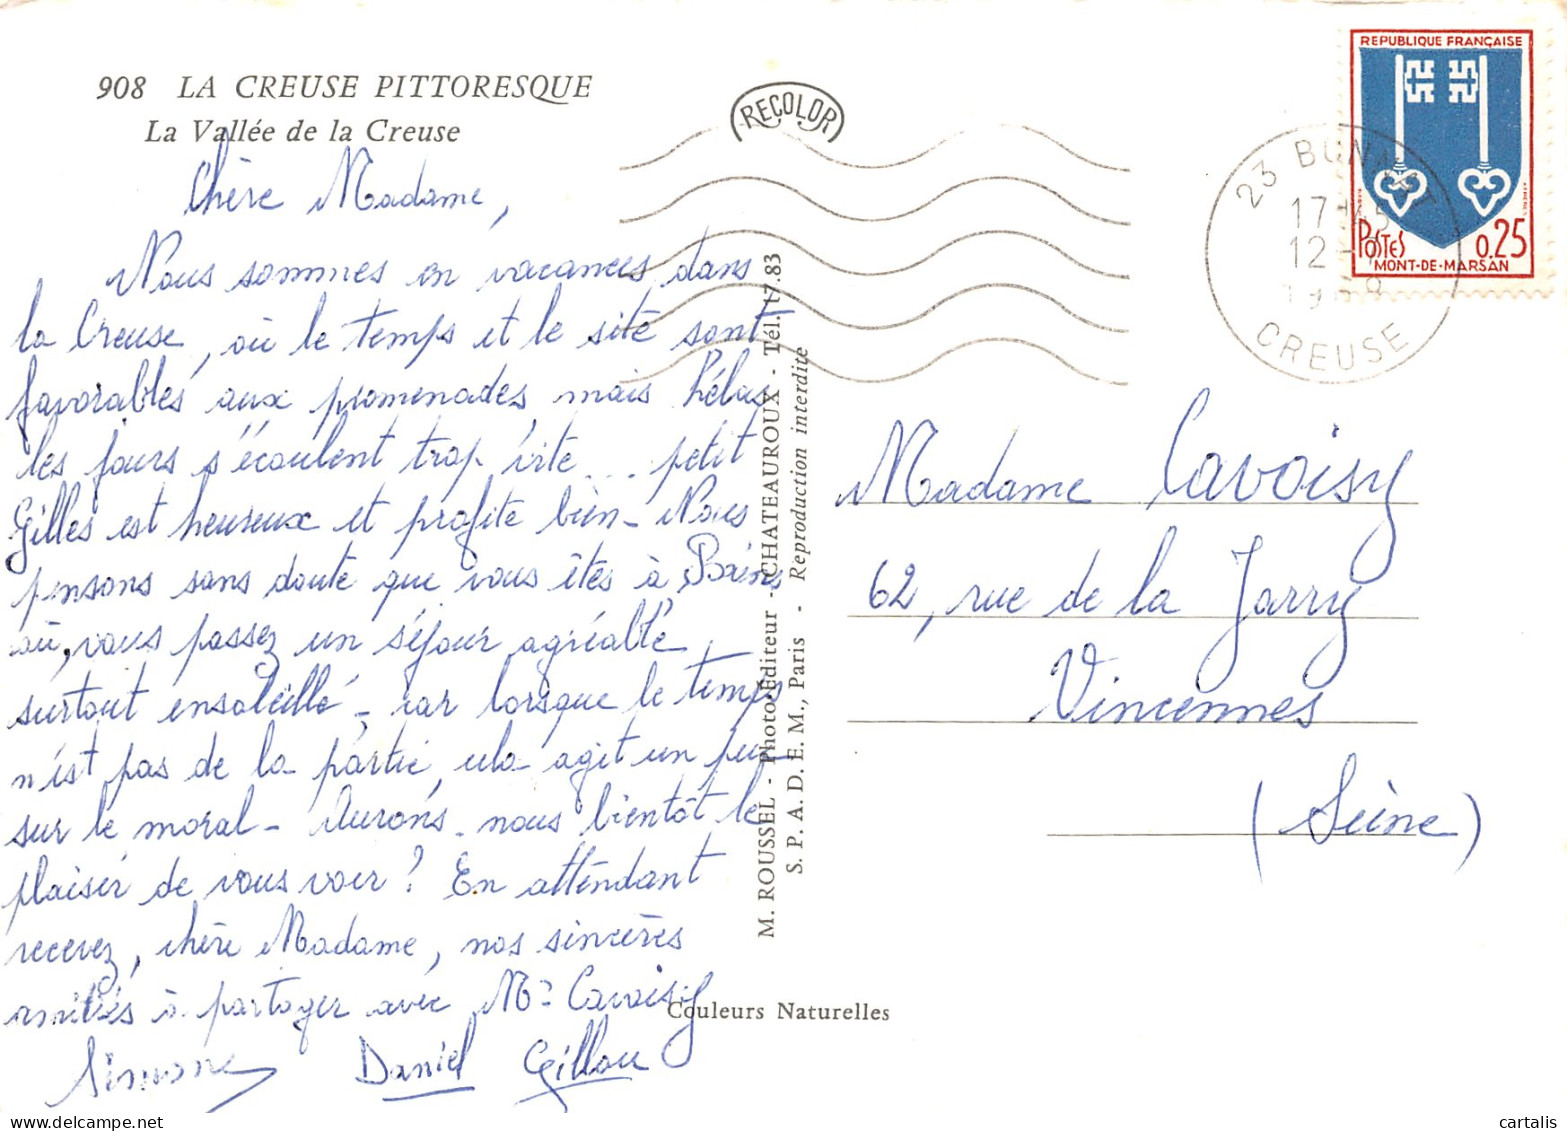 908 LA CREUSE PITTORESQUE
La Vallée de la Creuse
RECOLOR
REPUBLIQUE FRANÇAISE
POSTES 0.25
MONT-DE-MARSAN
23 BONNAT
17-45
12 -
1968
CREUSE
Chère Madame,
Nous sommes en vacances dans
la Creuse, où le temps et le site sont
favorables aux promenades, mais hélas
les jours s'écoulent trop vite... petit
Gilles est heureux et profite bien - Nous
pensons sans doute que vous êtes à Bains
où, vous passez un séjour agréable
surtout ensoleillé - car lorsque le temps
n'est pas de la partie, cela agit un peu
sur le moral - Aurons-nous bientôt le
plaisir de vous voir ? En attendant
recevez, chère Madame, nos sincères
amitiés à partager avec Mr Cavoisy
Simone Daniel Gillou
M. ROUSSEL - Photo-Editeur - CHATEAUROUX - Tél. 17.83
S. P. A. D. E. M., Paris - Reproduction interdite
Couleurs Naturelles
Madame Cavoisy
62, rue de la Jarry
Vincennes
(Seine)
cartalis